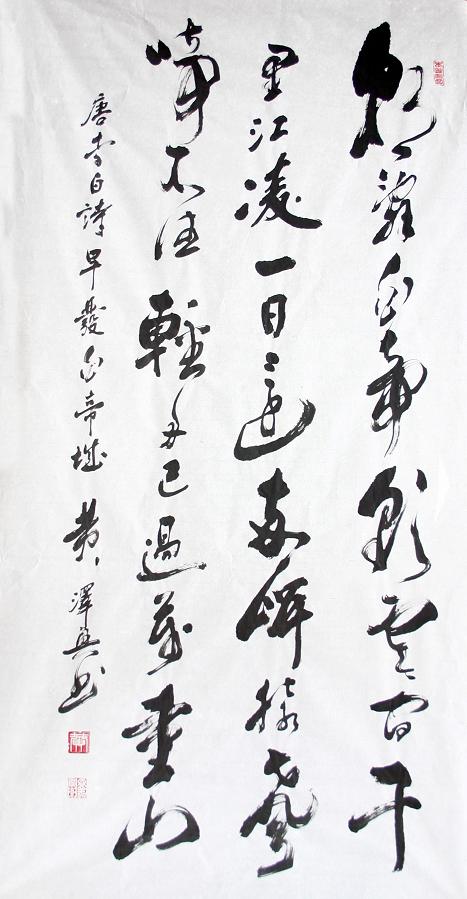 朝辭白帝彩雲間千
里江凌一日還兩岸猿聲
啼不住輕舟已過萬重山
唐李白詩早發白帝城 黃澤興書